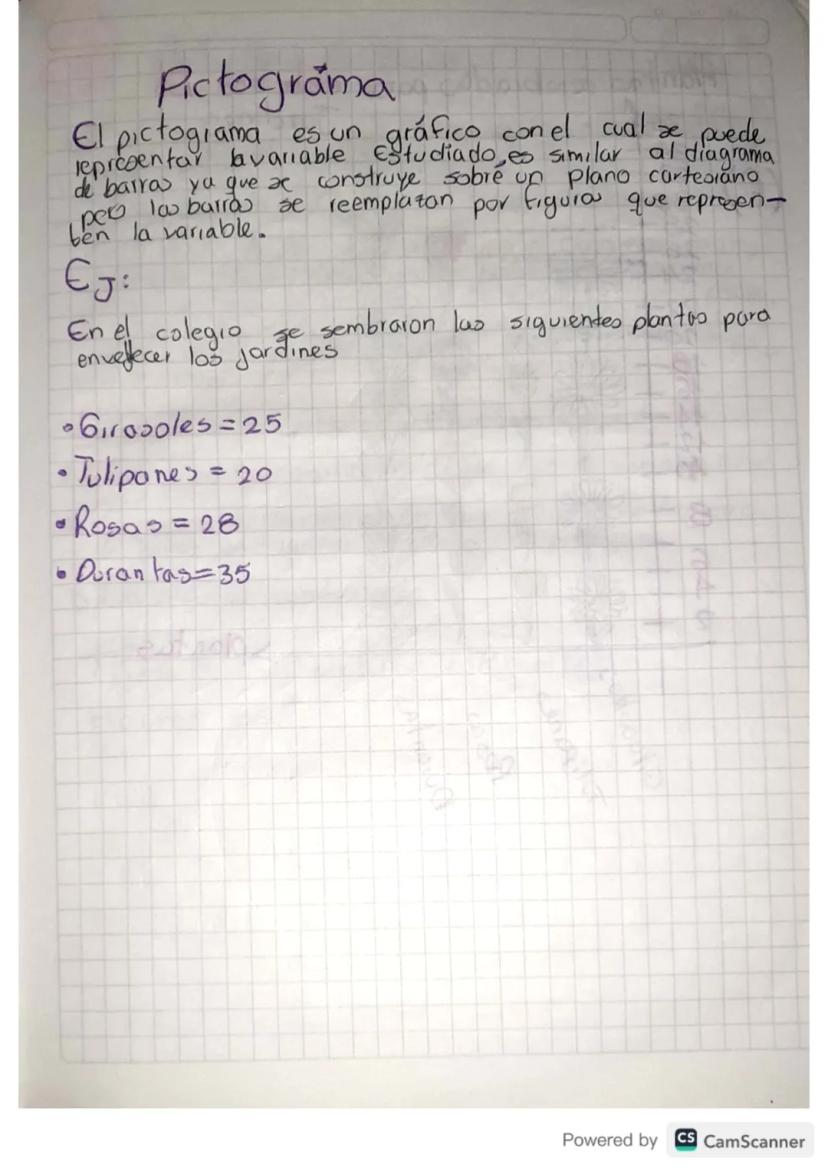 Pictográma
El pictograma es un gráfico con el cual se puede
representar la variable Estudiado, es similar al diagrama
de barras ya que se construye sobre un plano cartesiano
pero las barras se reemplazan por figuras que represen-
ten la variable.
EJ:
En el colegio se sembraron las siguientes plantas para
envellecer los jardines
• Girasoles = 25
• Tulipanes = 20
• Rosas = 28
• Durantas = 35
Powered by CS CamScanner